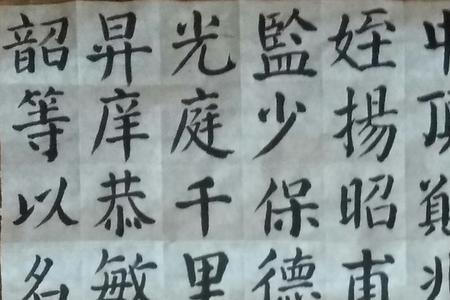 姪揚昭甫
監少保德
光庭千里
昇庠恭敏
韶等以名